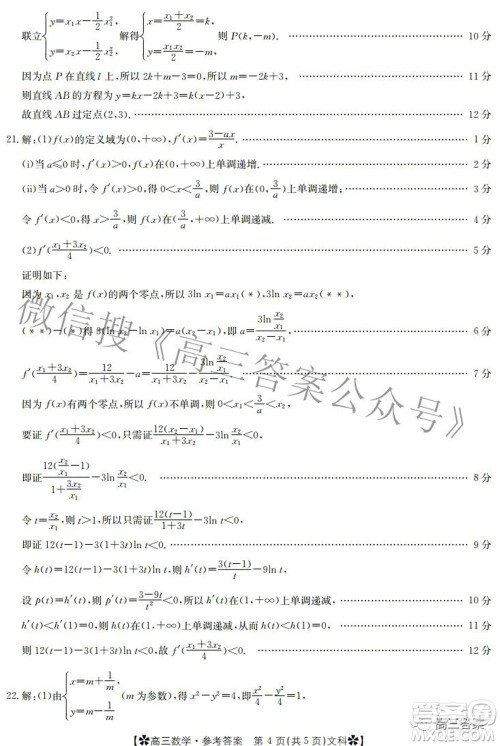 联立{y=x₁x-1/2 x₁², y=x₂x-1/2 x₂², 解得{x=(x₁+x₂)/2=k, y=x₁x₂/2=-m, 则 P(k,-m). 10分
因为点 P 在直线 l 上,所以 2k+m-3=0,即 m=3-2k, 11分
则直线 AB 的方程为 y=kx-2k+3=k(x-2)+3,
故直线 AB 过定点(2,3). 12分
21.解:(1)f(x)的定义域为(0,+∞),f′(x)=(3-ax)/x. 1分
(i)当 a≤0 时,f′(x)>0,f(x)在(0,+∞)上单调递增. 2分
(ii)当 a>0 时,令 f′(x)>0,得 0<x<3/a,则 f(x)在(0,3/a)上单调递增. 3分
令 f′(x)<0,得 x>3/a,则 f(x)在(3/a,+∞)上单调递减. 4分
(2)f′((x₁+3x₂)/4)<0. 5分
证明如下:
因为 x₁,x₂ 是 f(x)的两个零点,所以 3ln x₁=ax₁(*),3ln x₂=ax₂(**),
(**)-(*),得 3(ln x₂-ln x₁)=a(x₂-x₁),即 a=3ln(x₂/x₁)/(x₂-x₁). 6分
f′((x₁+3x₂)/4)=12/(x₁+3x₂)-a=12/(x₁+3x₂)-3ln(x₂/x₁)/(x₂-x₁). 7分
因为 f(x)有两个零点,所以 f(x)不单调,则 0<x₁<3/a<x₂.
要证 f′((x₁+3x₂)/4)<0,只需证 12(x₂-x₁)/(x₁+3x₂)-3ln(x₂/x₁)<0,
即证 12(x₂/x₁-1)/(1+3x₂/x₁)-3ln(x₂/x₁)<0. 8分
令 t=x₂/x₁,则 t>1,所以只需证 12(t-1)/(1+3t)-3ln t<0,
即证 12(t-1)-3(1+3t)ln t<0. 9分
令 h(t)=12(t-1)-3(1+3t)ln t,则 h′(t)=3(t-1)/t-9ln t,
设 p(t)=h′(t),则 p′(t)=(3-9t)/t²<0,所以 h′(t)在(1,+∞)上单调递减. 10分
h′(t)<h′(1)=0,所以 h(t)在(1,+∞)上单调递减. 11分
则 12(t-1)-3(1+3t)ln t<0,故 f′((x₁+3x₂)/4)<0. 12分
22.解:(1)由{x=m+1/m, y=m-1/m (m 为参数),得 x²-y²=4,即 x²/4-y²/4=1,
【高三数学·参考答案 第 4 页(共 5 页)文科】
微信搜《高三答案公众号》
高三答案